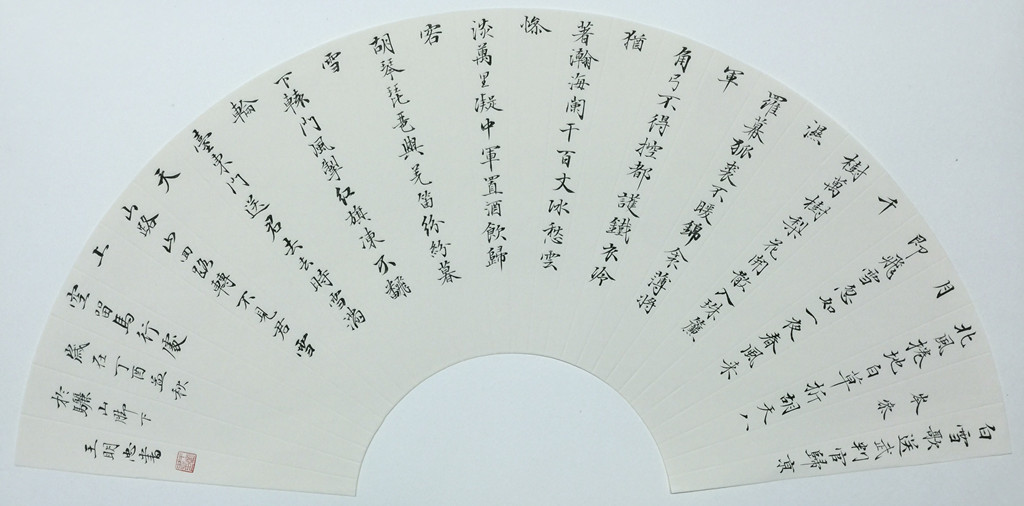 白雪歌送武判官歸京
岑參
北風捲地白草折胡天八
月
即飛雪忽如一夜春風來
千
樹萬樹梨花開散入珠簾
濕
羅幕狐裘不暖錦衾薄將
軍
角弓不得控都護鐵衣冷
猶
著瀚海闌干百丈冰愁雲
慘
淡萬里凝中軍置酒飲歸
客
胡琴琵琶與羌笛紛紛暮
雪
下轅門風掣紅旗凍不翻
輪
臺東門送君去去時雪滿
天
山路山回路轉不見君雪
上
空留馬行處
歲在丁酉孟秋
於驪山腳下
王明忠書